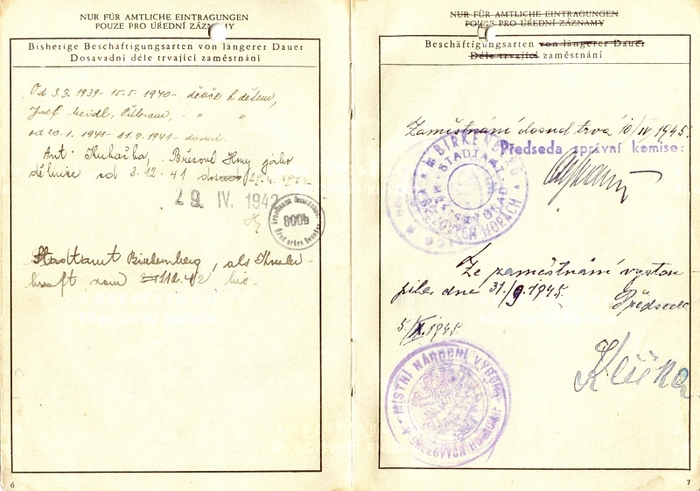 NUR FÜR AMTLICHE EINTRAGUNGEN
POUZE PRO ÚŘEDNÍ ZÁZNAMY
Bisherige Beschäftigungsarten von längerer Dauer
Dosavadní déle trvající zaměstnání
Od 3.3.1939 - 15.5.1940 - děvče k dětem,
Josef
od 20.1.1941 - 11.9.1941 - dosud
Ant. Kuhařka, Březové Hory jako
dělnice od 3.12.41
29. IV. 1942
8005
Stadtamt Birkenberg, als
kraft vom bis
6
NUR FÜR AMTLICHE EINTRAGUNGEN
POUZE PRO ÚŘEDNÍ ZÁZNAMY
Beschäftigungsarten von längerer Dauer
Déle trvající zaměstnání
Zaměstnání dosud trvá 10/IV 1945.
Předseda správní komise:
BIRKENBERG
STADTAMT
MĚSTSKÝ ÚŘAD
BŘEZOVÝCH HORÁCH
Ze zaměstnání vystou
pila dne 31./9.1945.
Předseda
5/X.1945.
MÍSTNÍ NÁRODNÍ VÝBOR
V BŘEZOVÝCH HORÁCH
7